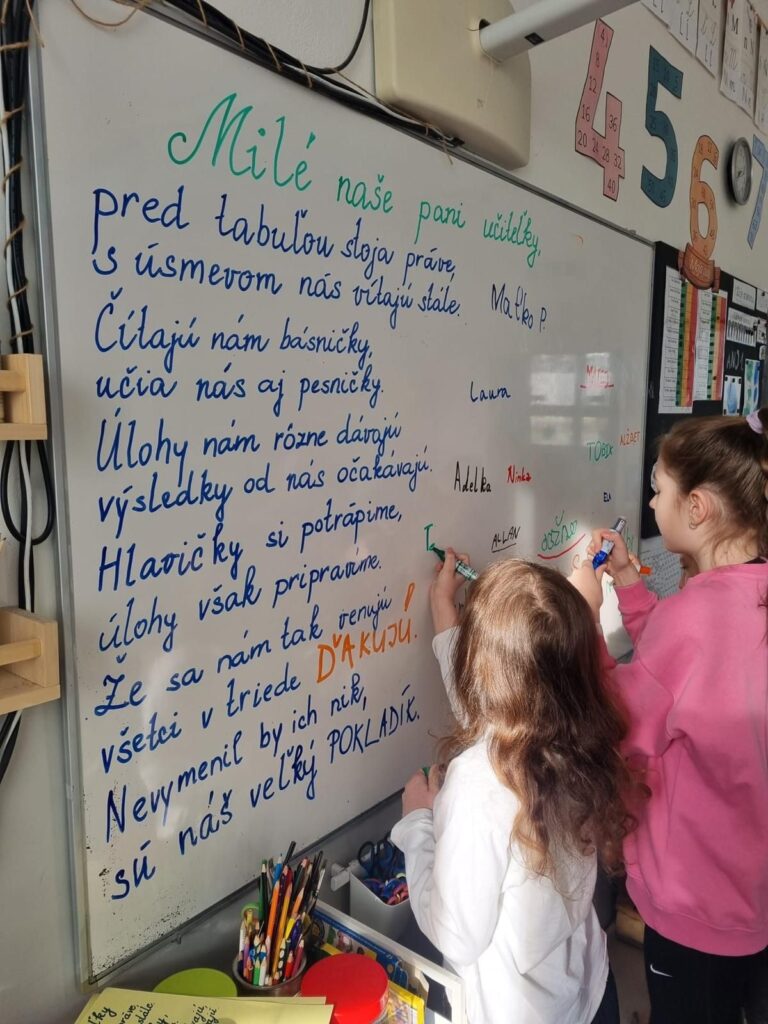 Milé naše pani učiteľky,
pred tabuľou stoja práve,
s úsmevom nás vítajú stále.
Čítajú nám básničky,
učia nás aj pesničky.
Úlohy nám rôzne dávajú
výsledky od nás očakávajú.
Hlavičky si potrápime,
úlohy však pripravíme.
Že sa nám tak venujú
všetci v triede ĎAKUJÚ!
Nevymenil by ich nik,
sú náš veľký POKLADÍK.
Maťko P.
Laura
TOBIK
Adelka
Ninka
ELA
ALLAN
4
8
12
16
36
20 24 28 32
40
5
6
7